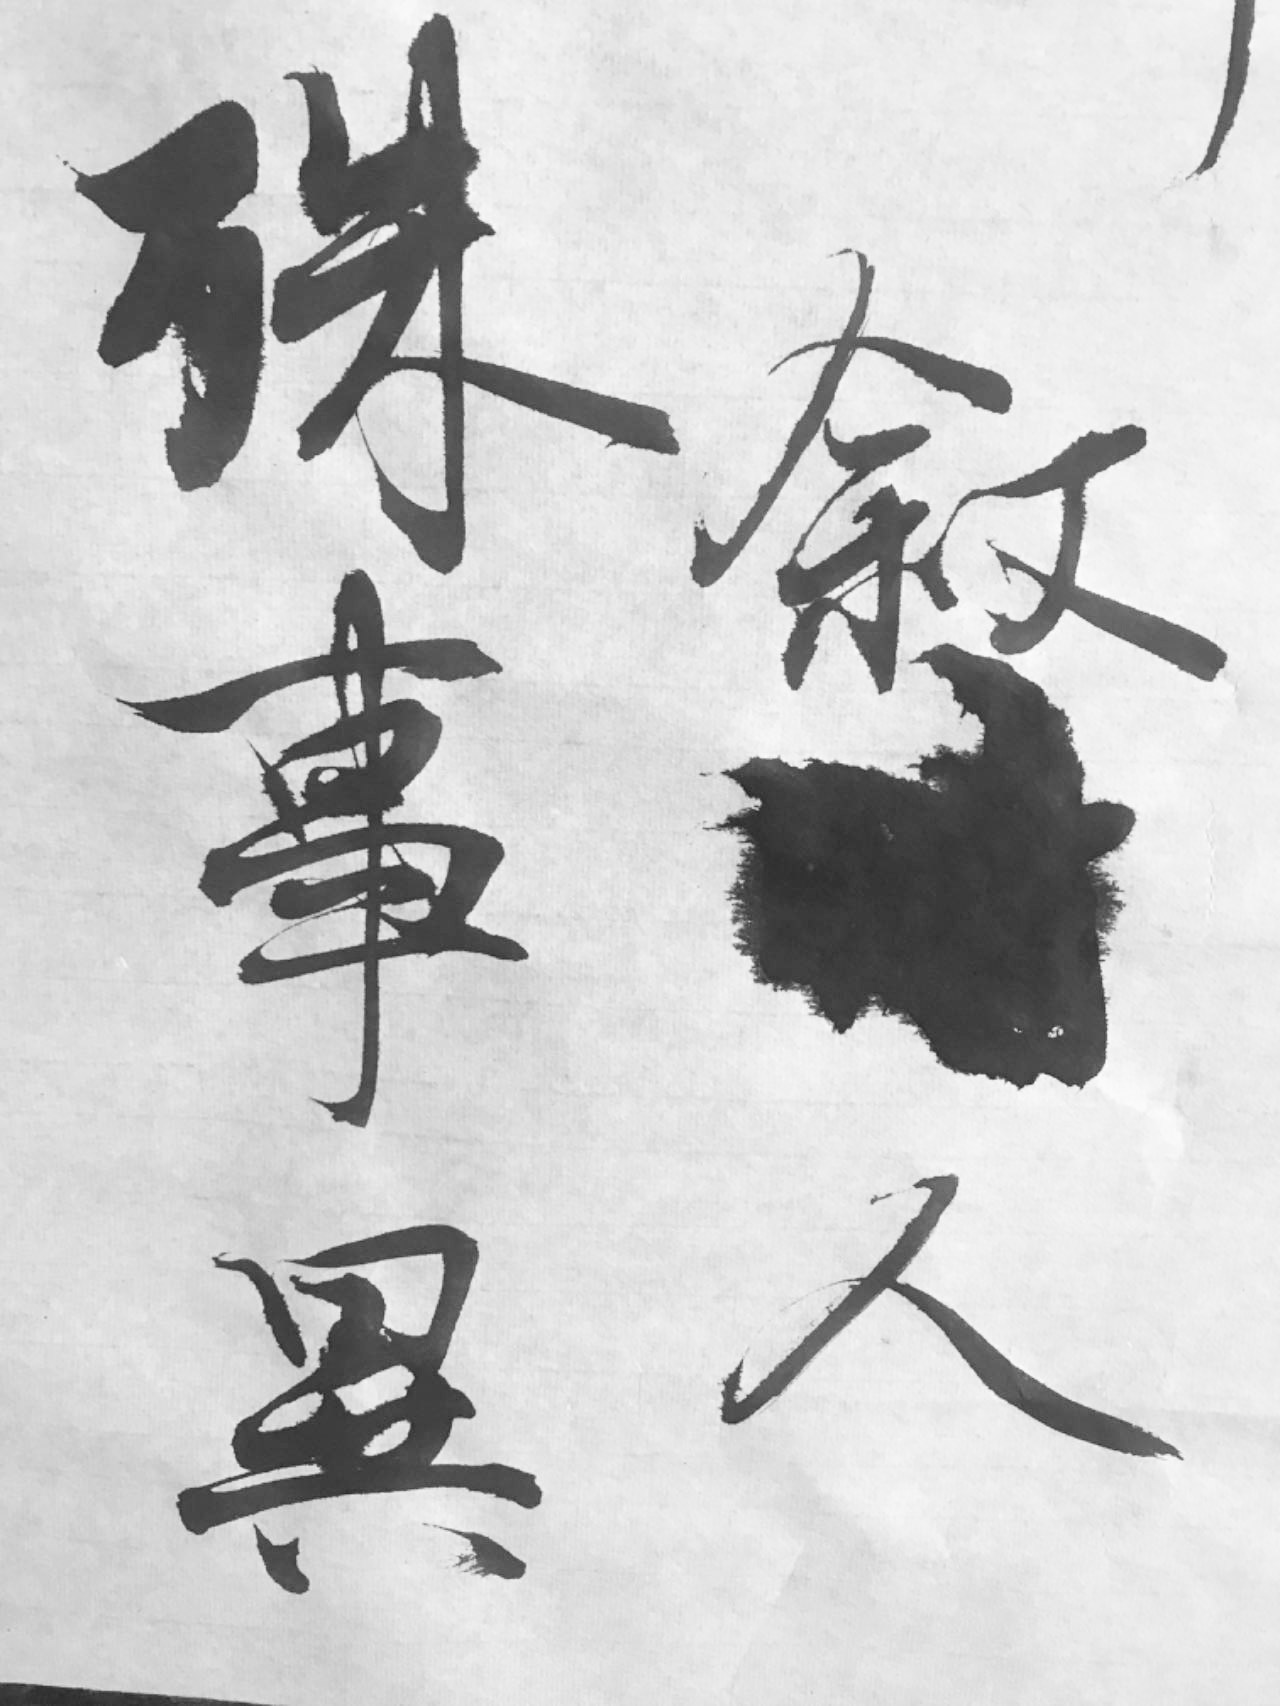 叙人
殊事異